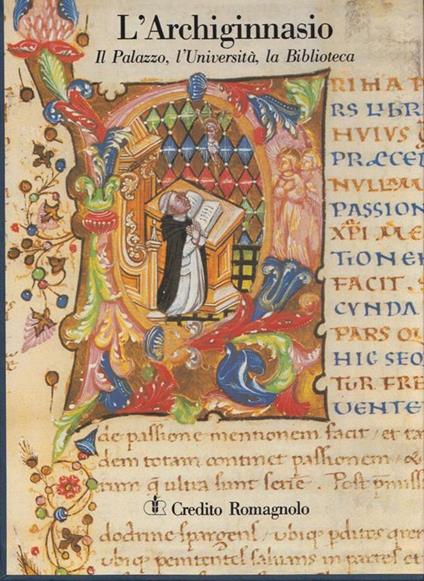 L'Archiginnasio
Il Palazzo, l'Università, la Biblioteca
RIMA P
RS LIBRI
HUIUS
PRÆCED
NULLAM
PASSION
XPI ME
TIONEM
FACIT.
CUNDA
PARS QU
HIC SEQ
TUR FRE
UENTE
de passione mentionem facit / et ta
dem totam continet passionem / &
rum q ultra sunt serie. Post pmiss
Credito Romagnolo
doctrine spargens / ubiq pditos
ubiq penitentes saluans in partes et